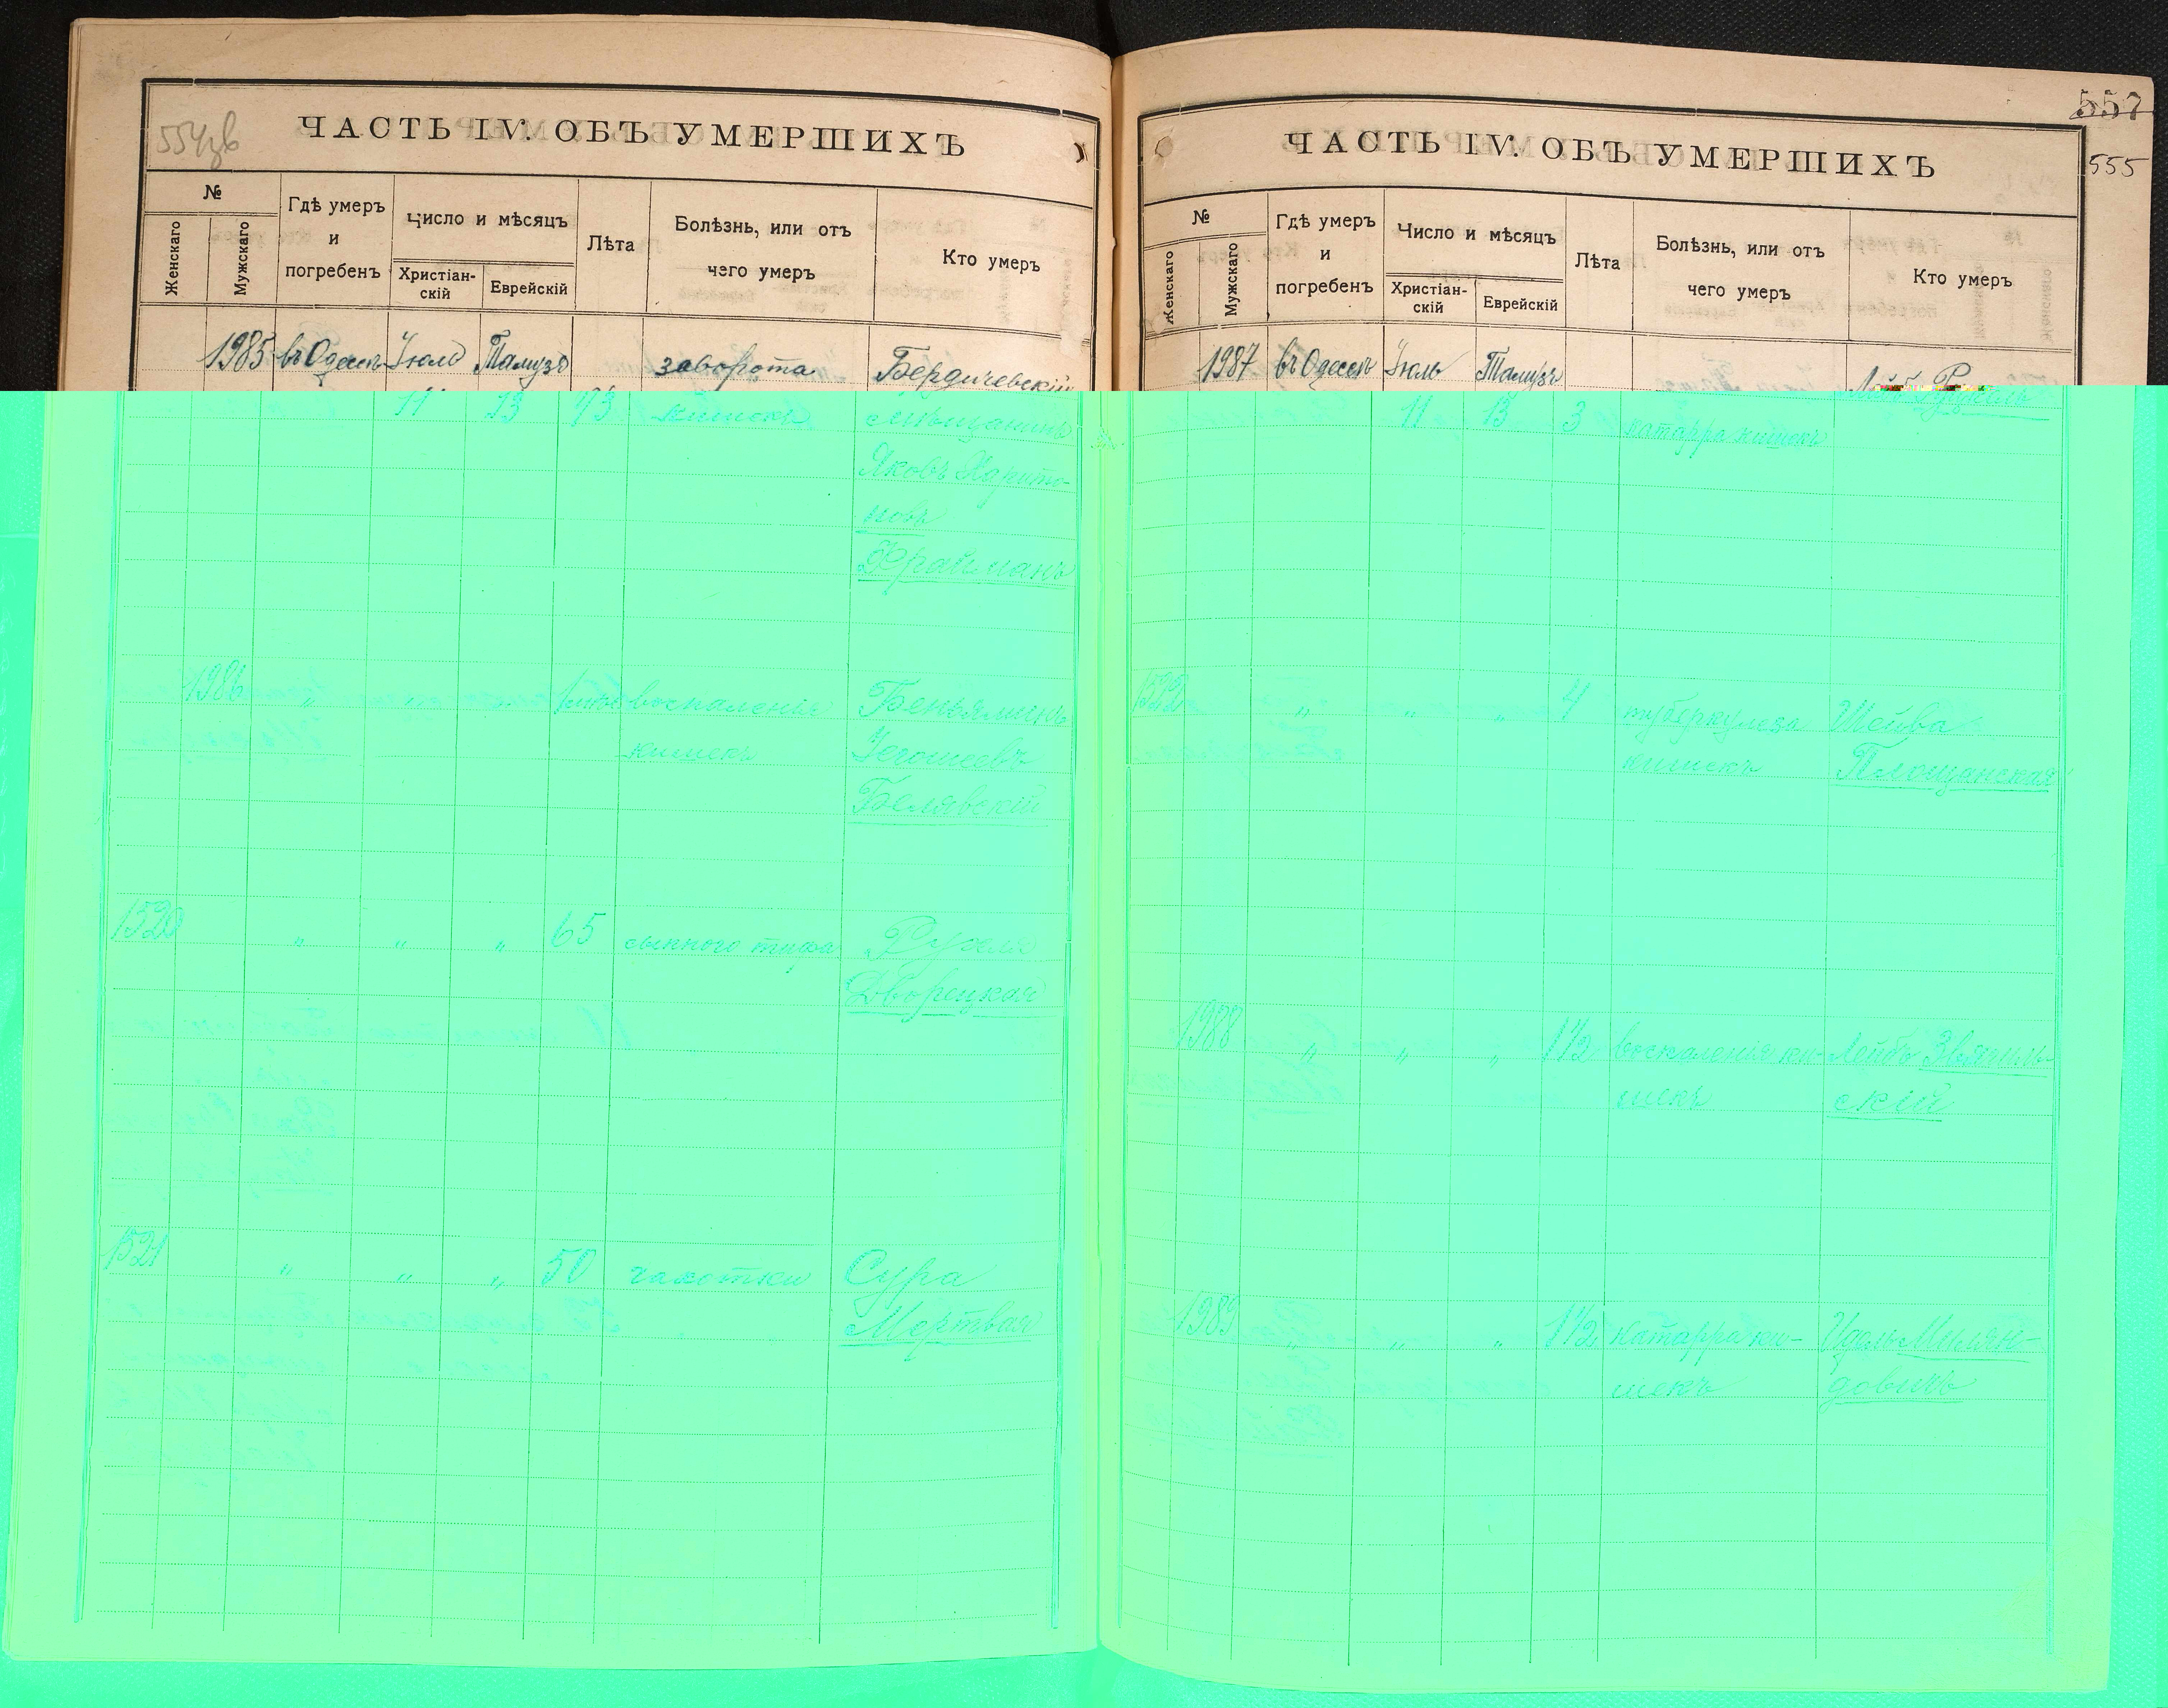 ЧАСТЬ IV. ОБЪ УМЕРШИХЪ
№
Женскаго
Мужскаго
Гдѣ умеръ
и
погребенъ
Число и мѣсяцъ
Христіан-
скій
Еврейскій
Лѣта
Болѣзнь, или отъ
чего умеръ
Кто умеръ
1985 въ Одессѣ Іюля Тамузъ заворота Бердичевскій
11 13 73 кишекъ мѣщанинъ
Яковъ Харито-
новъ
Фрайманъ
1986 " воспаленія Беньяминъ
кишекъ
Белявскій
1520 " " " 65 сыпного тифа Рухля
Дворецкая
1521 " " " 50 чахотки Сура
Мертвая
557
555
ЧАСТЬ IV. ОБЪ УМЕРШИХЪ
№
Женскаго
Мужскаго
Гдѣ умеръ
и
погребенъ
Число и мѣсяцъ
Христіан-
скій
Еврейскій
Лѣта
Болѣзнь, или отъ
чего умеръ
Кто умеръ
1987 въ Одессѣ Іюль Тамузъ
11 13 3 катарра кишекъ
1522 " " " 4 туберкулеза Шейва
кишекъ Площанская
1988 " " " 1½ воспаленія ки- Лейбъ Звягиль-
шекъ скій
1989 " " " 1½ катарра ки-
шекъ довичъ